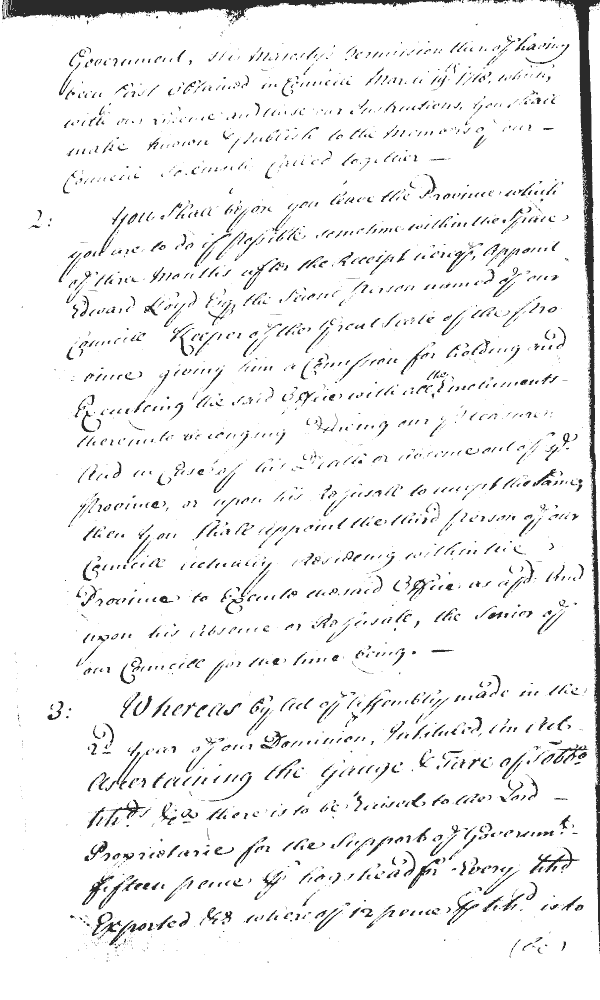 Government, His Majestys Permission thereof having
been first obtained in Councill
with our Licence and these our Instructions, you shall
make known & Publish to the Members of our —
Councill Solemnly Called together —
2: You Shall before you leave the Province which
you are to do if Possible sometime within the Space
of three months after the Receipt hereof, Appoint
Edward Lloyd Esq. the Second Person named of our
Councill Keeper of the Great Seale of the Pro
vince giving him a Comission for holding and
Executing the said Office with all the Emoluments
thereunto belonging During our Pleasure
And in Case of his Death or absence out of ye.
Province, or upon his Refusall to accept the Same,
then you Shall appoint the third Person of our
Councill actually Residing within the
Province to Execute the said Office as afd. And
upon his Absence or Refusall, the Senior of
our Councill for the time being. —
3: Whereas by Act of Assembly made in the
2d. Year of our Dominion, Intituled, An Act
Ascertaining the Gauge & Tare of Tobbo.
hhds. &ca. there is to be Raised to the Lord —
Proprietarie for the Support of Governmt.
fifteen pence hogshead for Every hhd
Exported &ca. whereof 12 pence hhd. is to
(be)